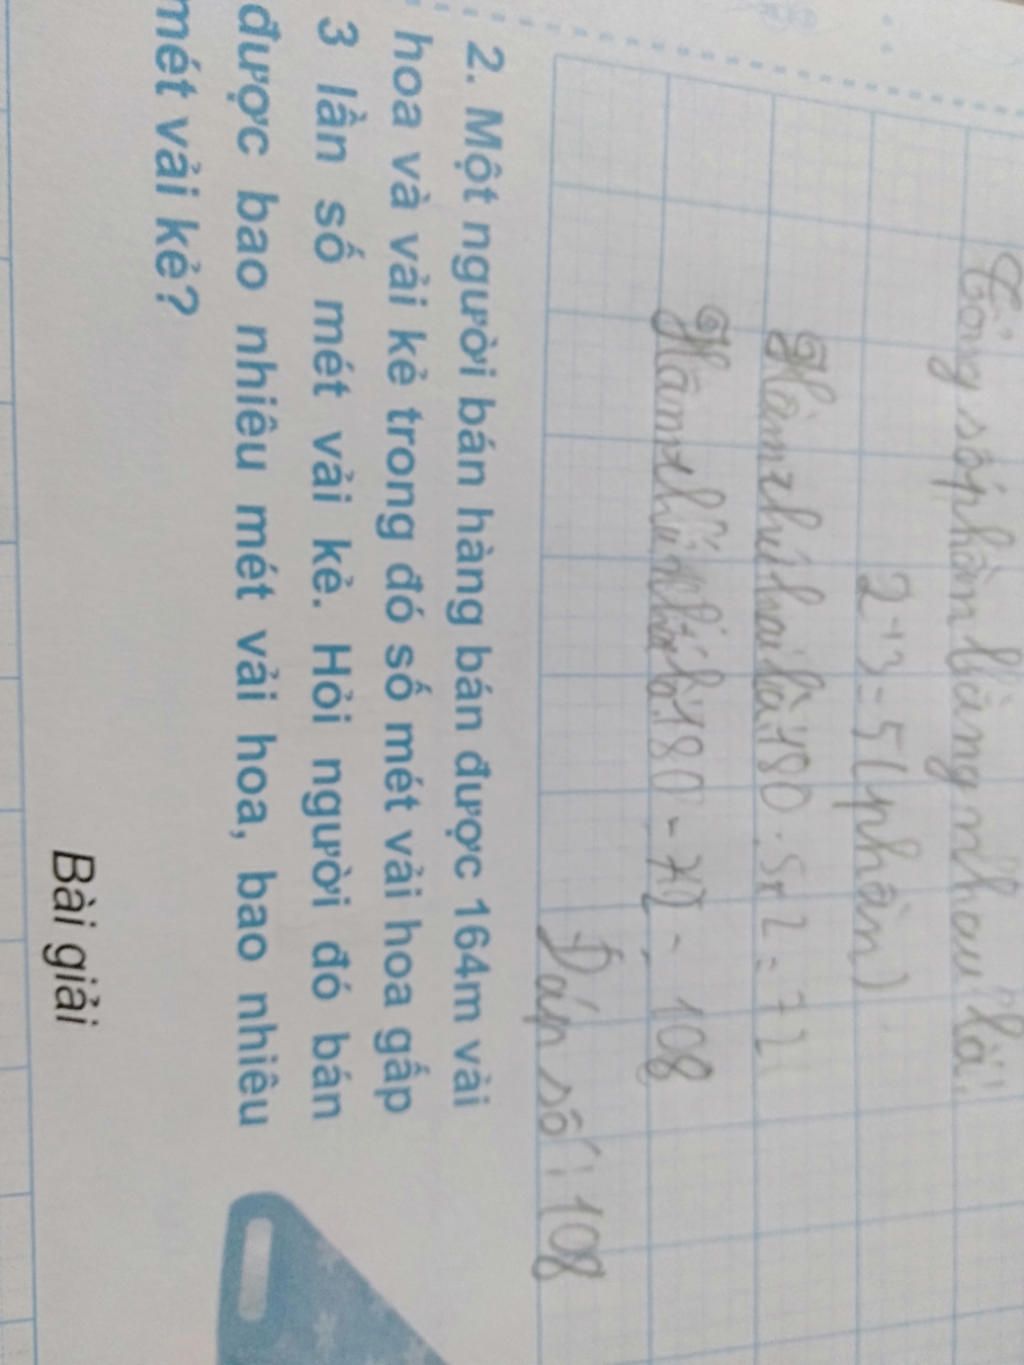 Tổng số phần bằng nhau là:
2+3=5(phần)
Hầm thứ hai là:180:5x2=72
Hầm thứ nhất là:180-72= 108
Đáp số: 108
2. Một người bán hàng bán được 164m vải
hoa và vải kẻ trong đó số mét vải hoa gấp
3 lần số mét vải kẻ. Hỏi người đó bán
được bao nhiêu mét vải hoa, bao nhiêu
mét vải kẻ?
Bài giải